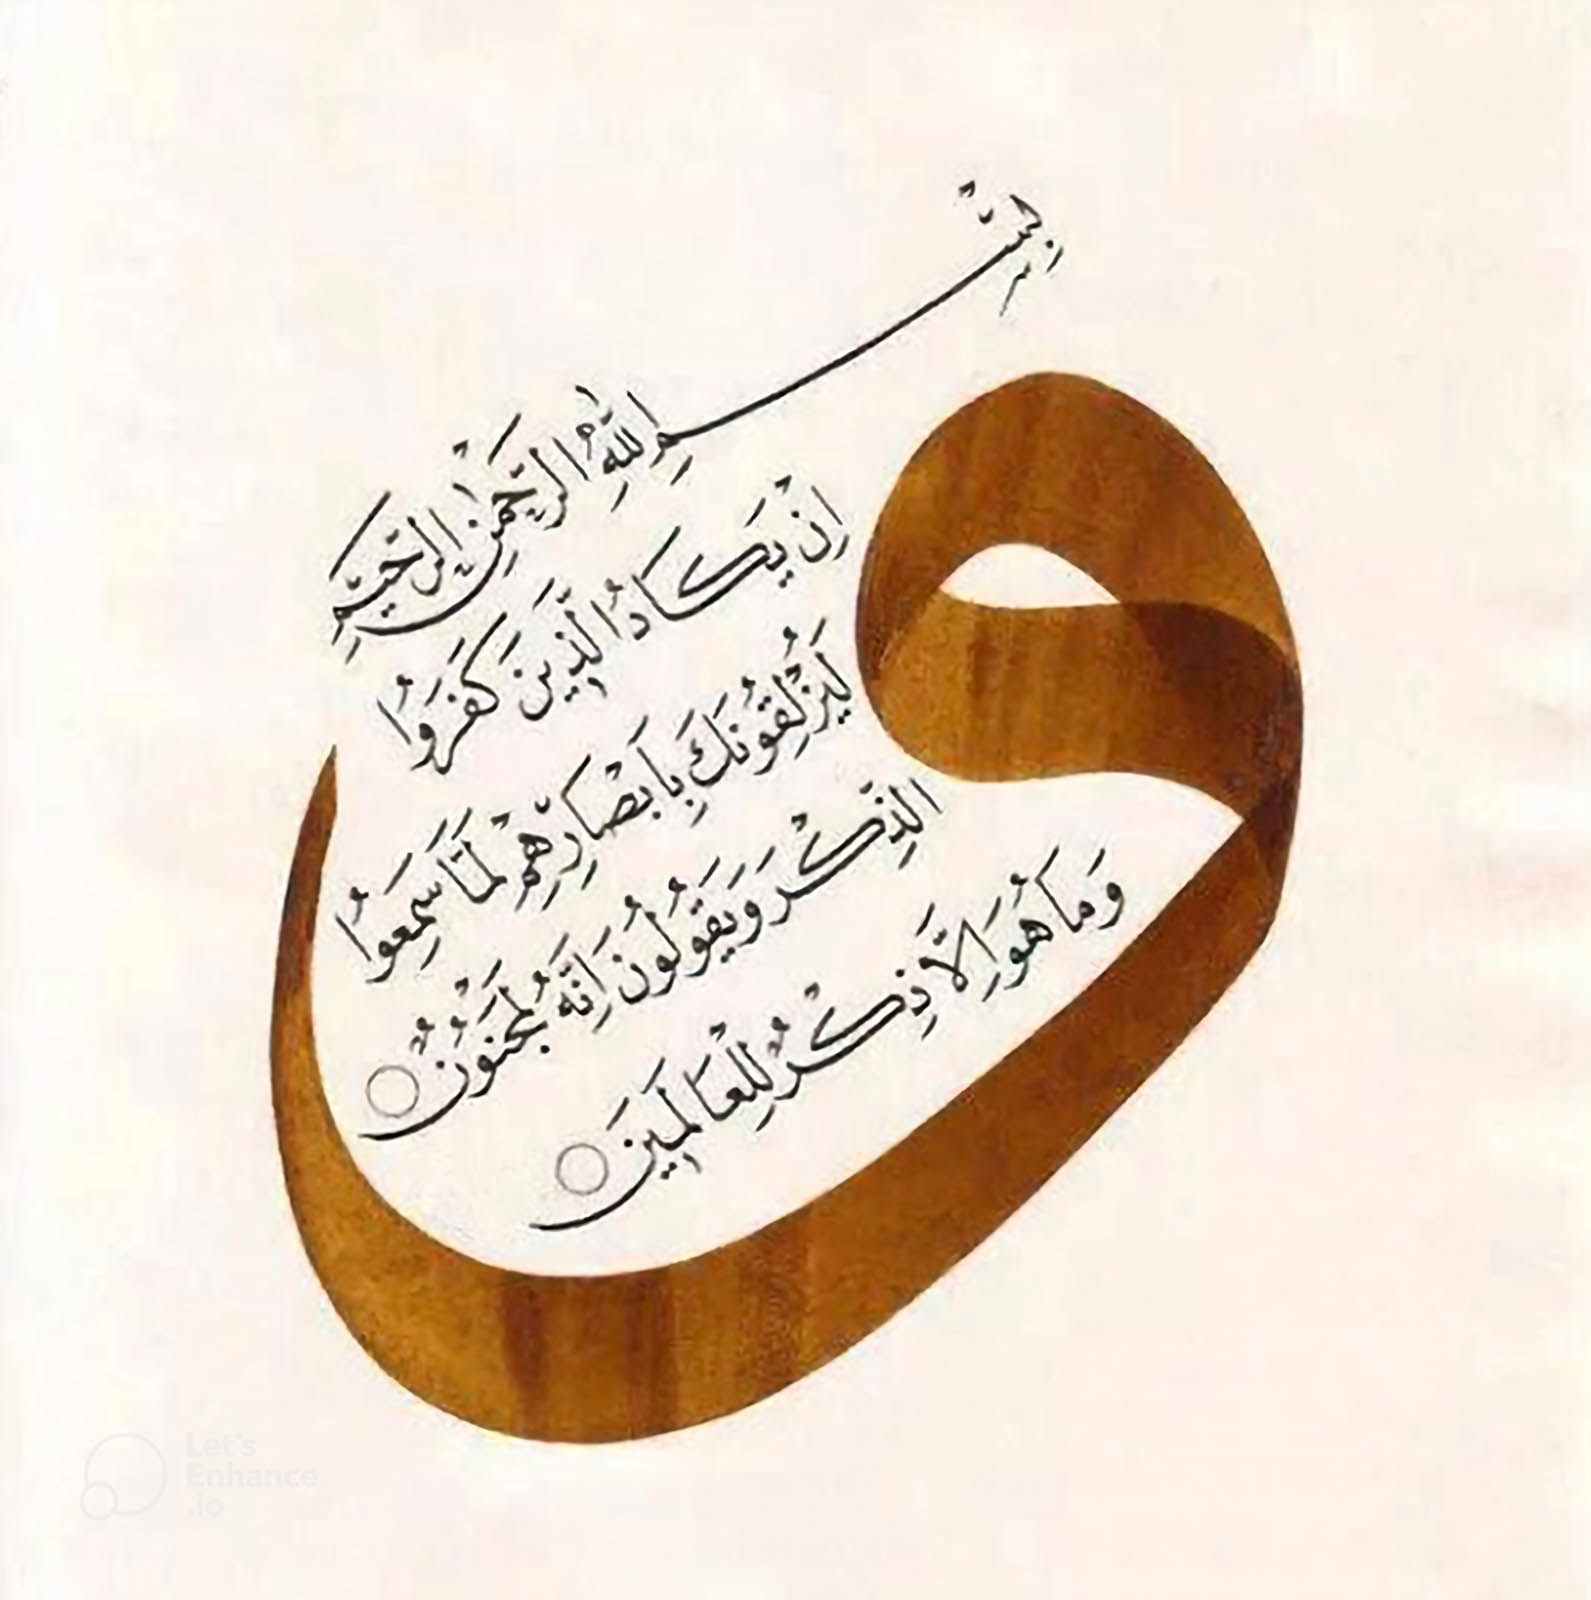 و
بِسْمِ اللّٰهِ الرَّحْمٰنِ الرَّحِيمِ
اِنْ يَكَادُ الَّذِينَ كَفَرُوا
لَيُزْلِقُونَكَ بِاَبْصَارِهِمْ لَمَّا سَمِعُوا
الذِّكْرَ وَيَقُولُونَ اِنَّهُ لَمَجْنُونٌ
وَمَا هُوَ اِلَّا ذِكْرٌ لِلْعَالَمِينَ
Let's
Enhance
.io